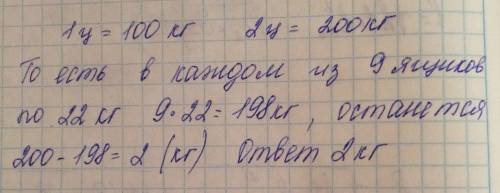 1ц = 100 кг 2ц = 200кг
То есть в каждом из 9 ящиков
по 22 кг 9·22=198кг, останется
200-198=2 (кг) Ответ 2кг